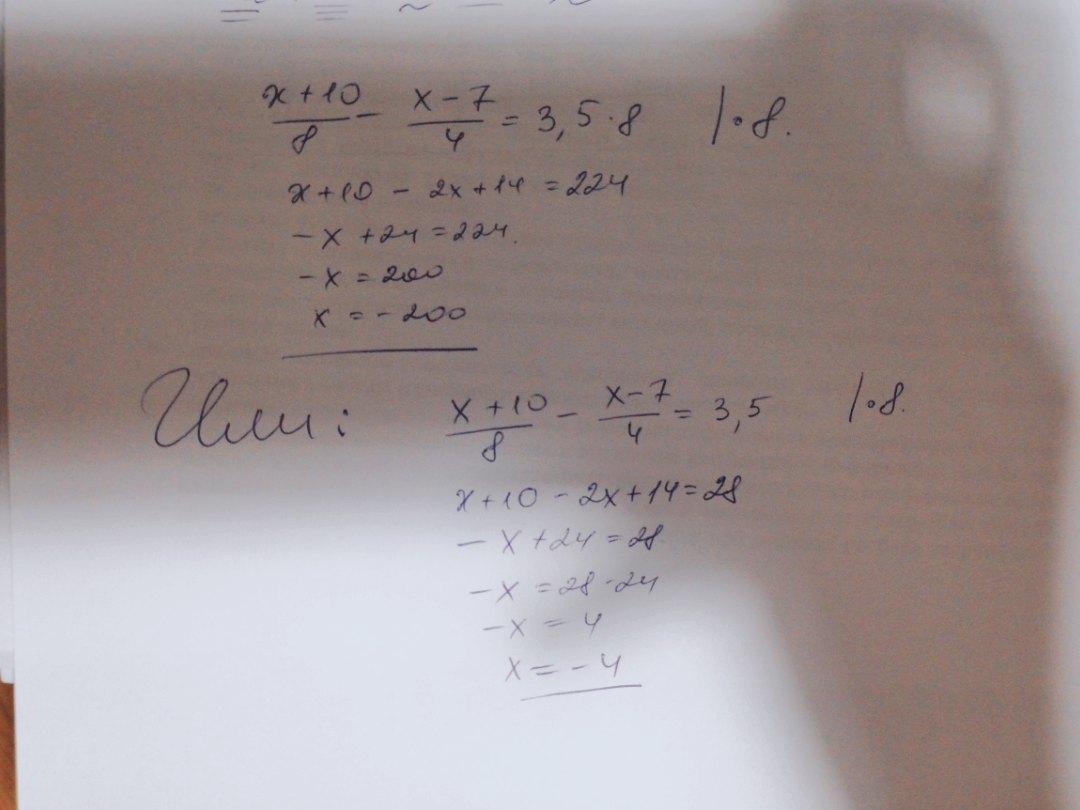 x+10/8 - x-7/4 = 3,5·8 |·8.
x+10 - 2x+14 = 224
-x +24 = 224.
-x = 200
x = -200
Или: x+10/8 - x-7/4 = 3,5 |·8.
x+10 - 2x+14 = 28
-x+24 = 28
-x = 28-24
-x = 4
x = -4